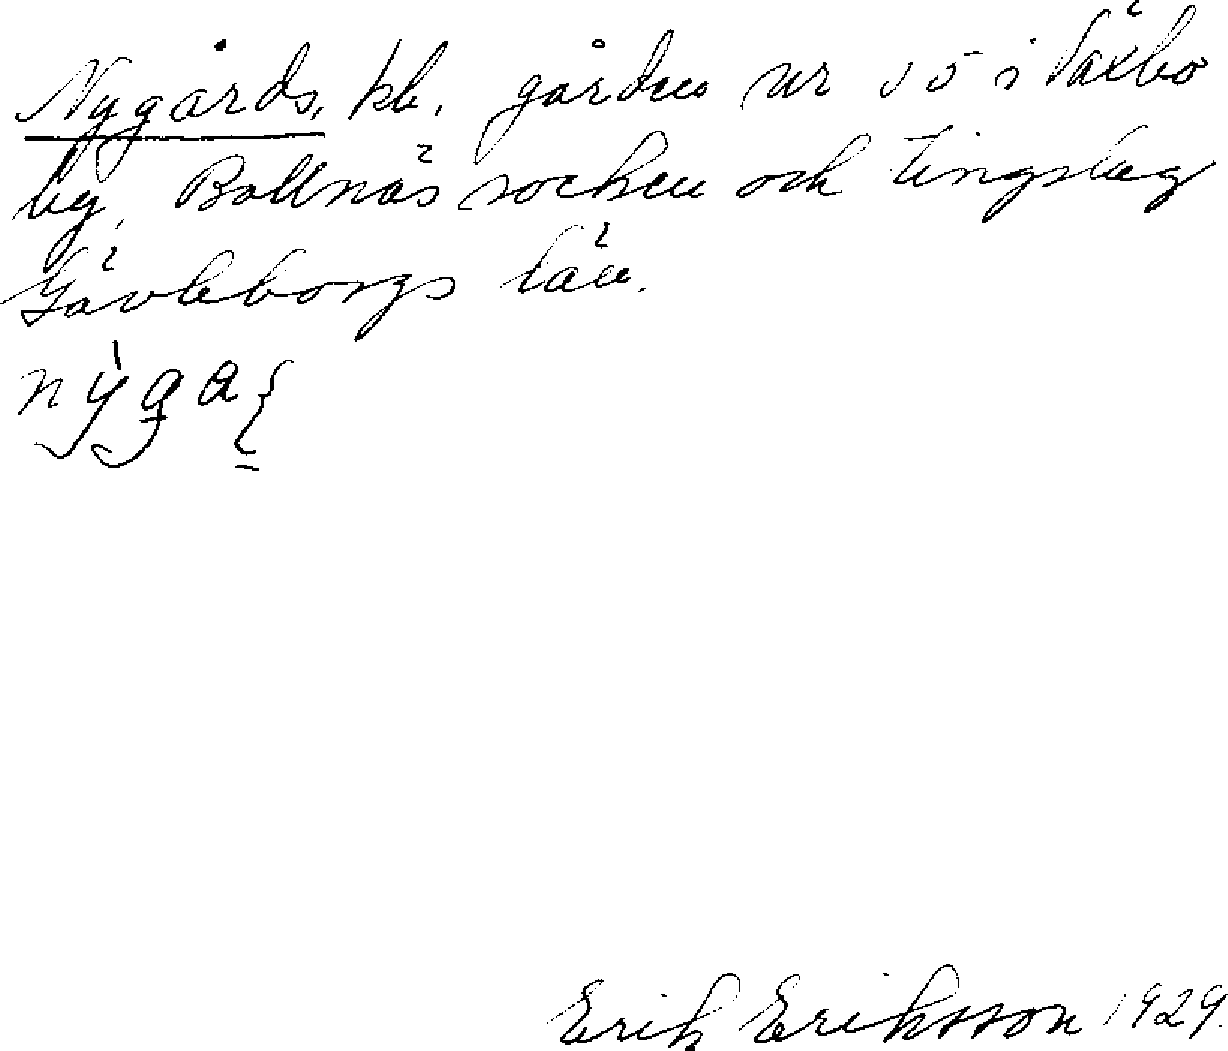 Nygårds, kb. gården nr 15 i Växbo
by, Bollnäs socken och tingslag
Gävleborgs län.
Erik Eriksson 1929.